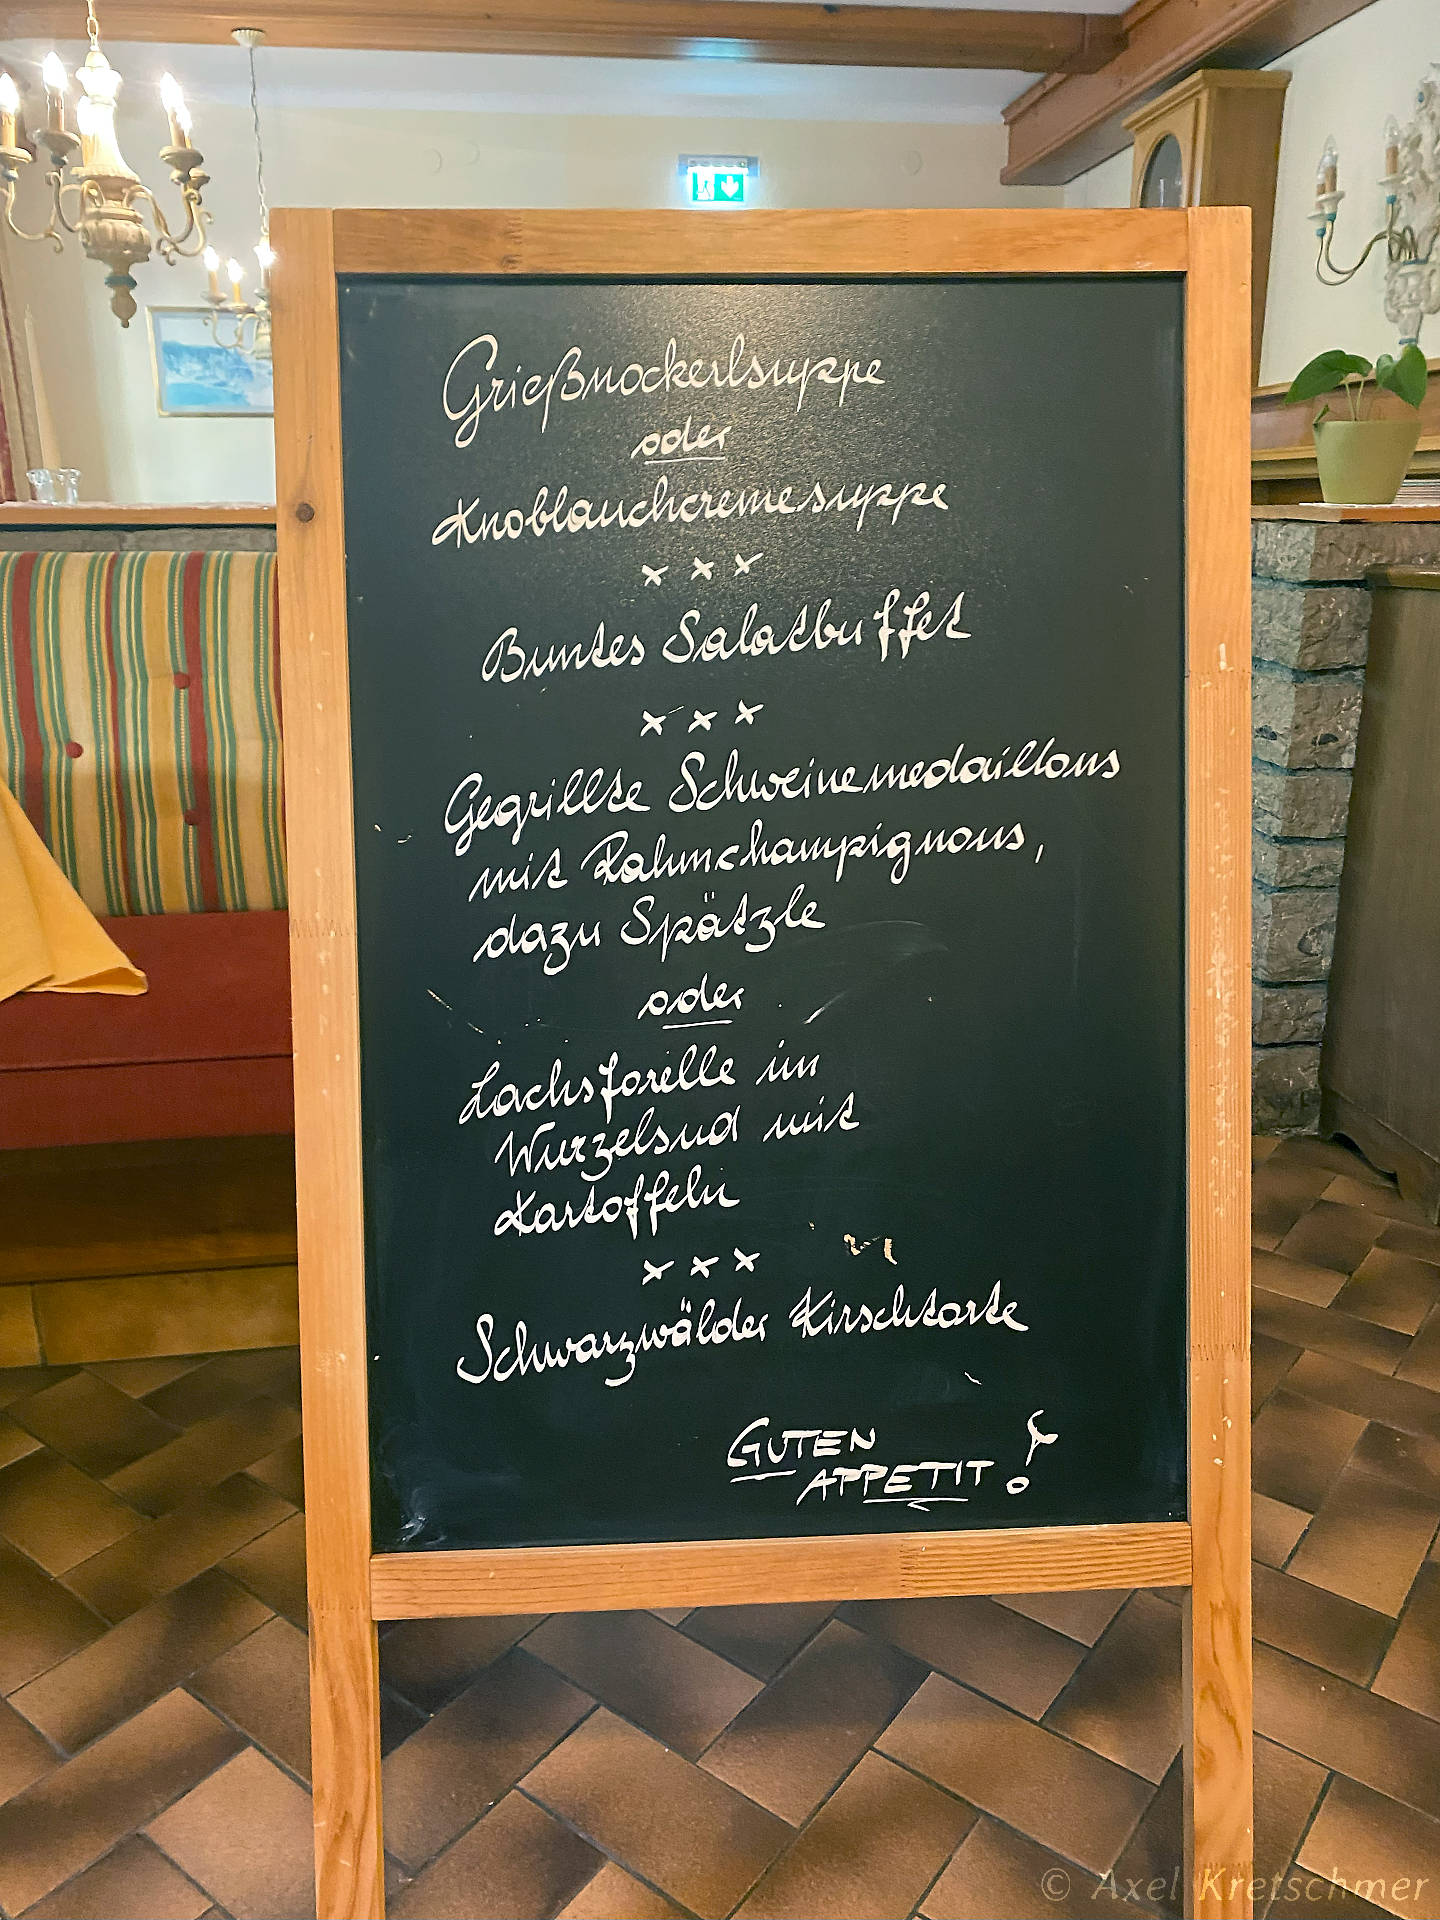 Grießnockerlsuppe
oder
Knoblauchcremesuppe
x x x
Buntes Salatbuffet
x x x
Gegrillte Schweinemedaillons
mit Rahmchampignons,
dazu Spätzle
oder
Lachsforelle im
Wurzelsud mit
Kartoffeln
x x x
Schwarzwälder Kirschtorte
GUTEN
APPETIT !
© Axel Kretschmer